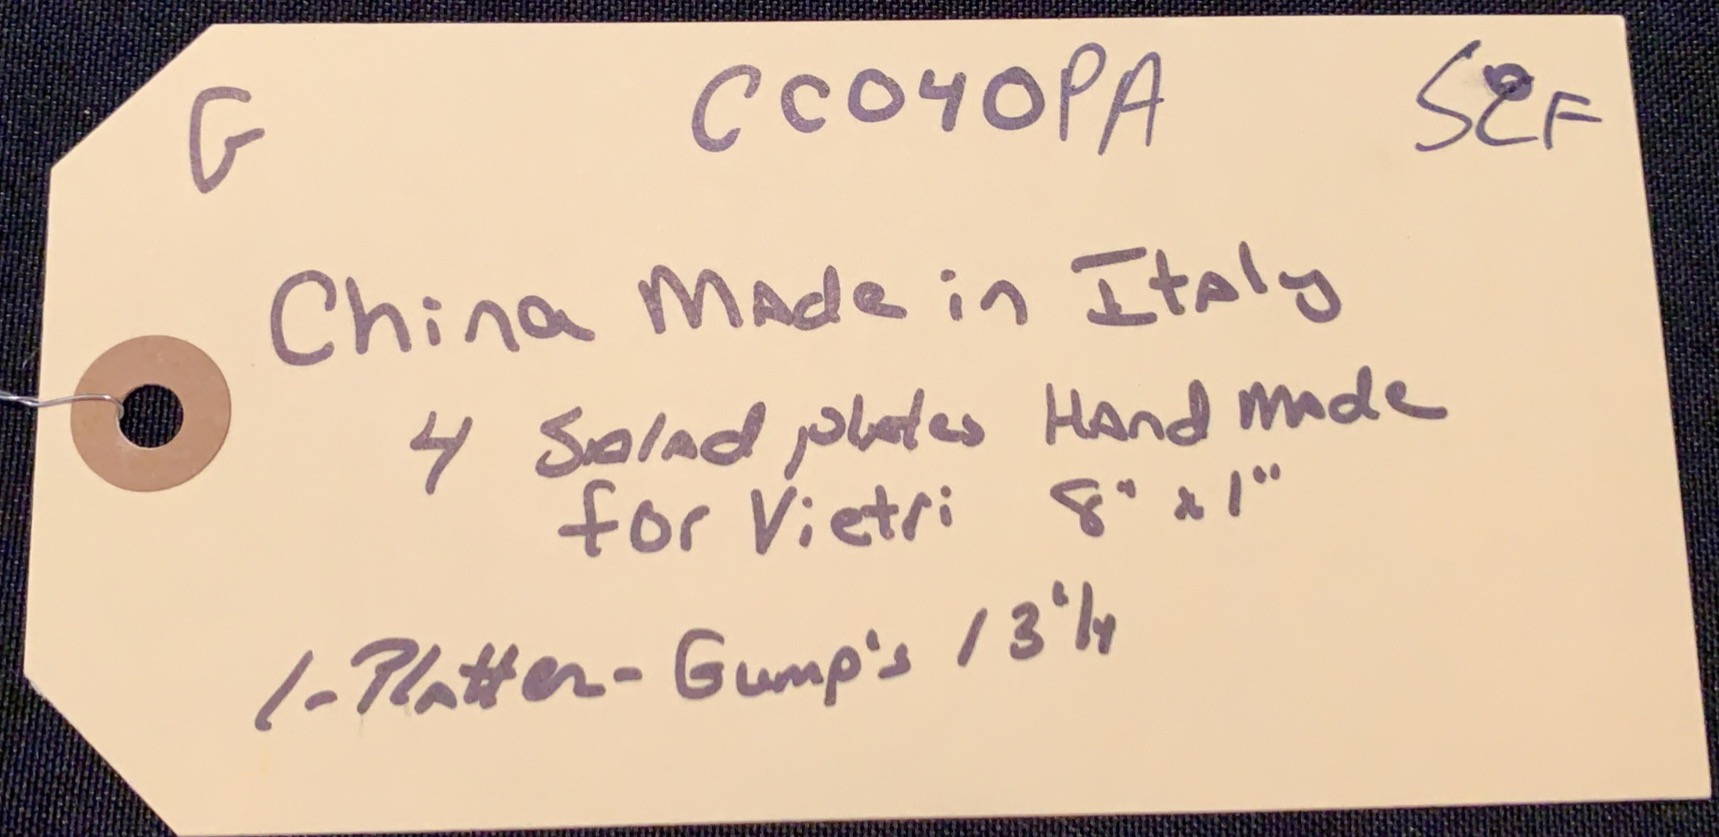 G CC040PA SCF
China Made in Italy
4 Salad plates Hand made
for Vietri 8" x 1"
1-Platter-Gump's 13 1/4